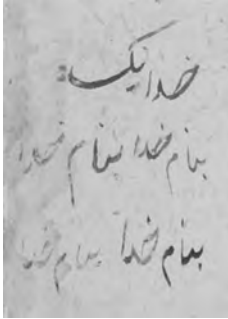 خدا یک
بنام خدا بنام خدا
بنام خدا بنام خدا